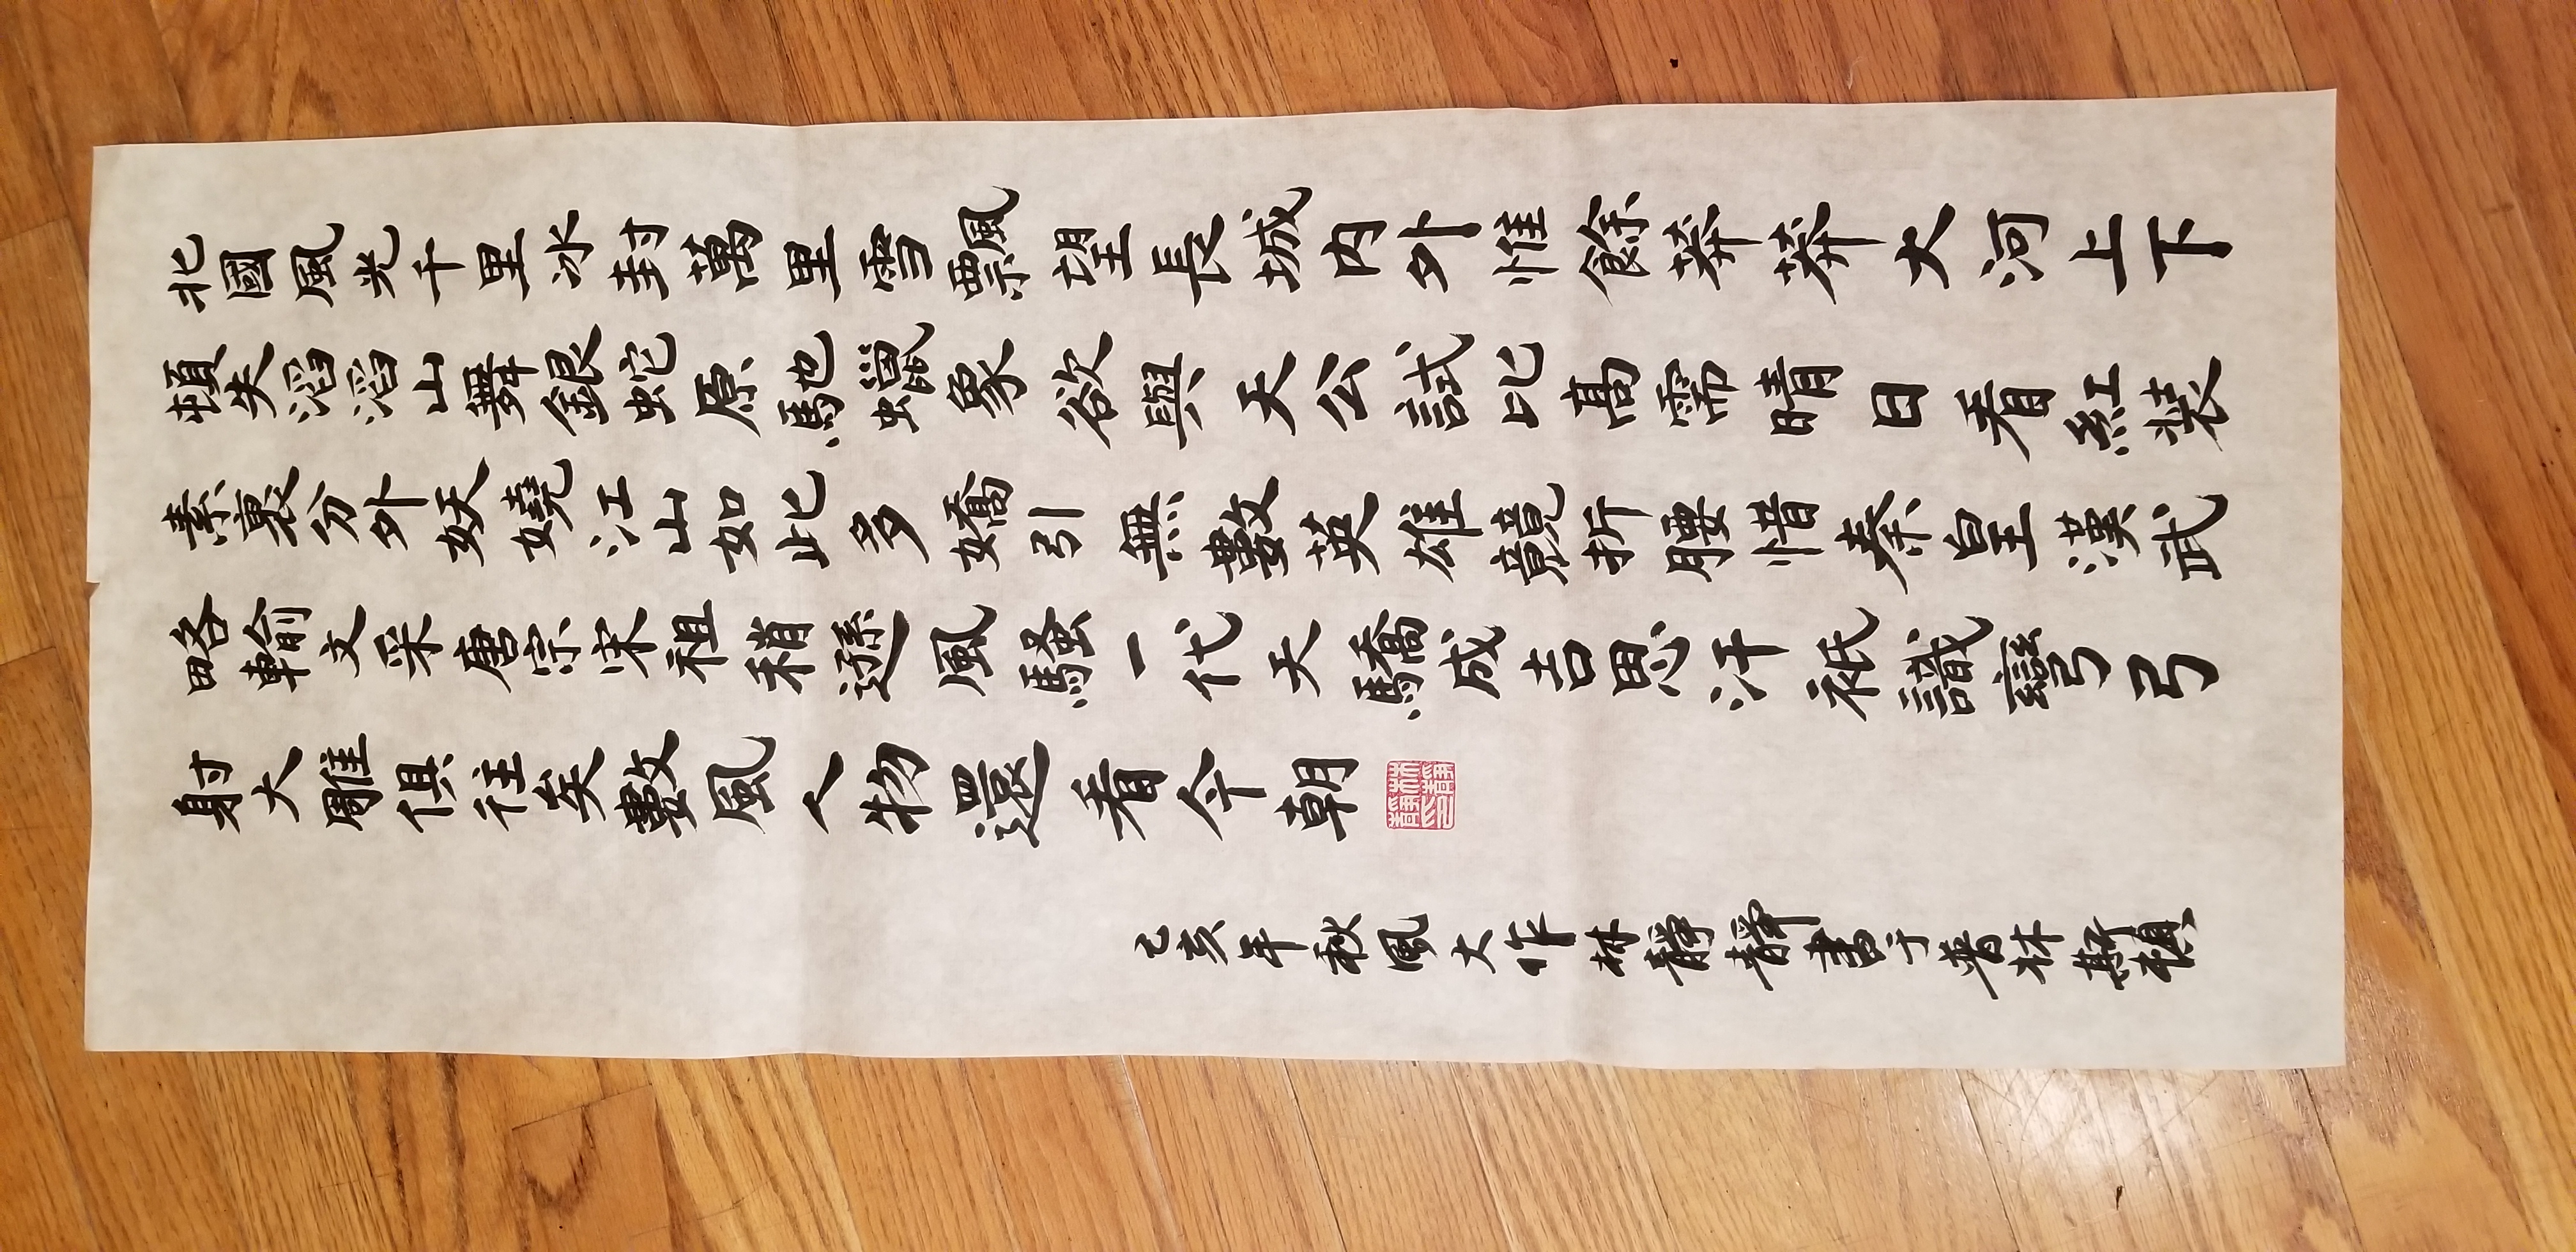 北國風光千里冰封萬里雪飄望長城内外惟餘莽莽大河上下
頓失滔滔山舞銀蛇原馳蠟象欲與天公試比高需晴日看紅装
素裹分外妖嬈江山如此多嬌引無數英雄競折腰惜秦皇漢武
略輸文采唐宗宋祖稍遜風騷一代天驕成吉思汗衹識彎弓
射大雕俱往矣數風人物還看今朝
林靜靜印
己亥年秋風大作林靜靜書于普林斯頓